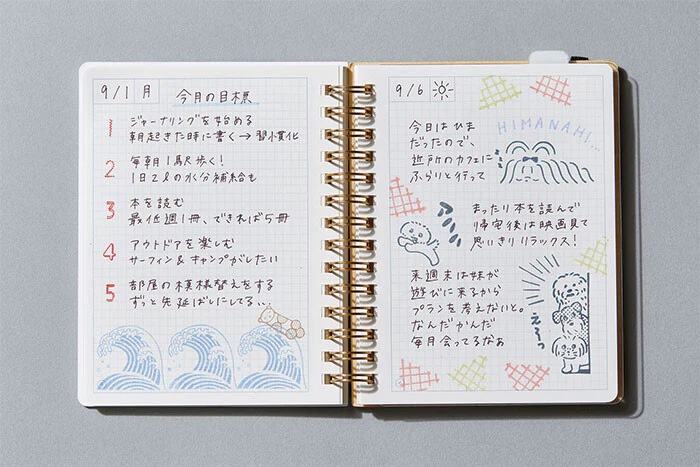 9/1 月
今月の目標
1 ジャーナリングを始める
朝起きた時に書く→習慣化
2 毎朝1駅歩く!
1日2ℓの水分補給も
3 本を読む
最低週1冊、できれば5冊
4 アウトドアを楽しむ
サーフィン&キャンプがしたい
5 部屋の模様替えをする
ずっと先延ばしにしてる…
9/6
HIMANAHI...
今日はひま
だったので、
近所のカフェに
ふらりと行って
まったり本を読んで
帰宅後は映画見て
思いきりリラックス!
来週末は妹が
遊びに来るから
プランを考えないと。
なんだかんだ
毎月会ってるなぁ